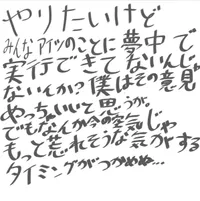 やりたいけど
みんなアイツのことに夢中で
実行できてないんじゃ
ないんか?僕はその意見
やっちいいして思うが。
でもなんか今の空気じゃ
もっと荒れそうな気がする
タイミングがつかめぬ…